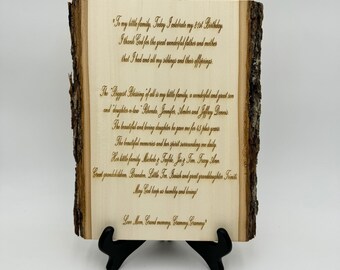 "To my little family, Today I celebrate my 81st Birthday.
I thank God for the great wonderful father and mother
that I had and all my siblings and their offsprings.
The "Biggest Blessing of all is my little family, a wonderful and great son
and daughter-n-law Rhonda, Jennifer, and Jeffrey Dennis
The beautiful and loving daughter he gave me for 43 plus years
The beautiful memories and her spirit surrounding us daily
Her little family Michele & Jai & Tim, Tracy, Aaron
Great grandchildren Braeden, Little Tim, and great granddaughter
May God keep us humbly and loving!
Love Mom, Grand mommy, Grammy, Grammy"